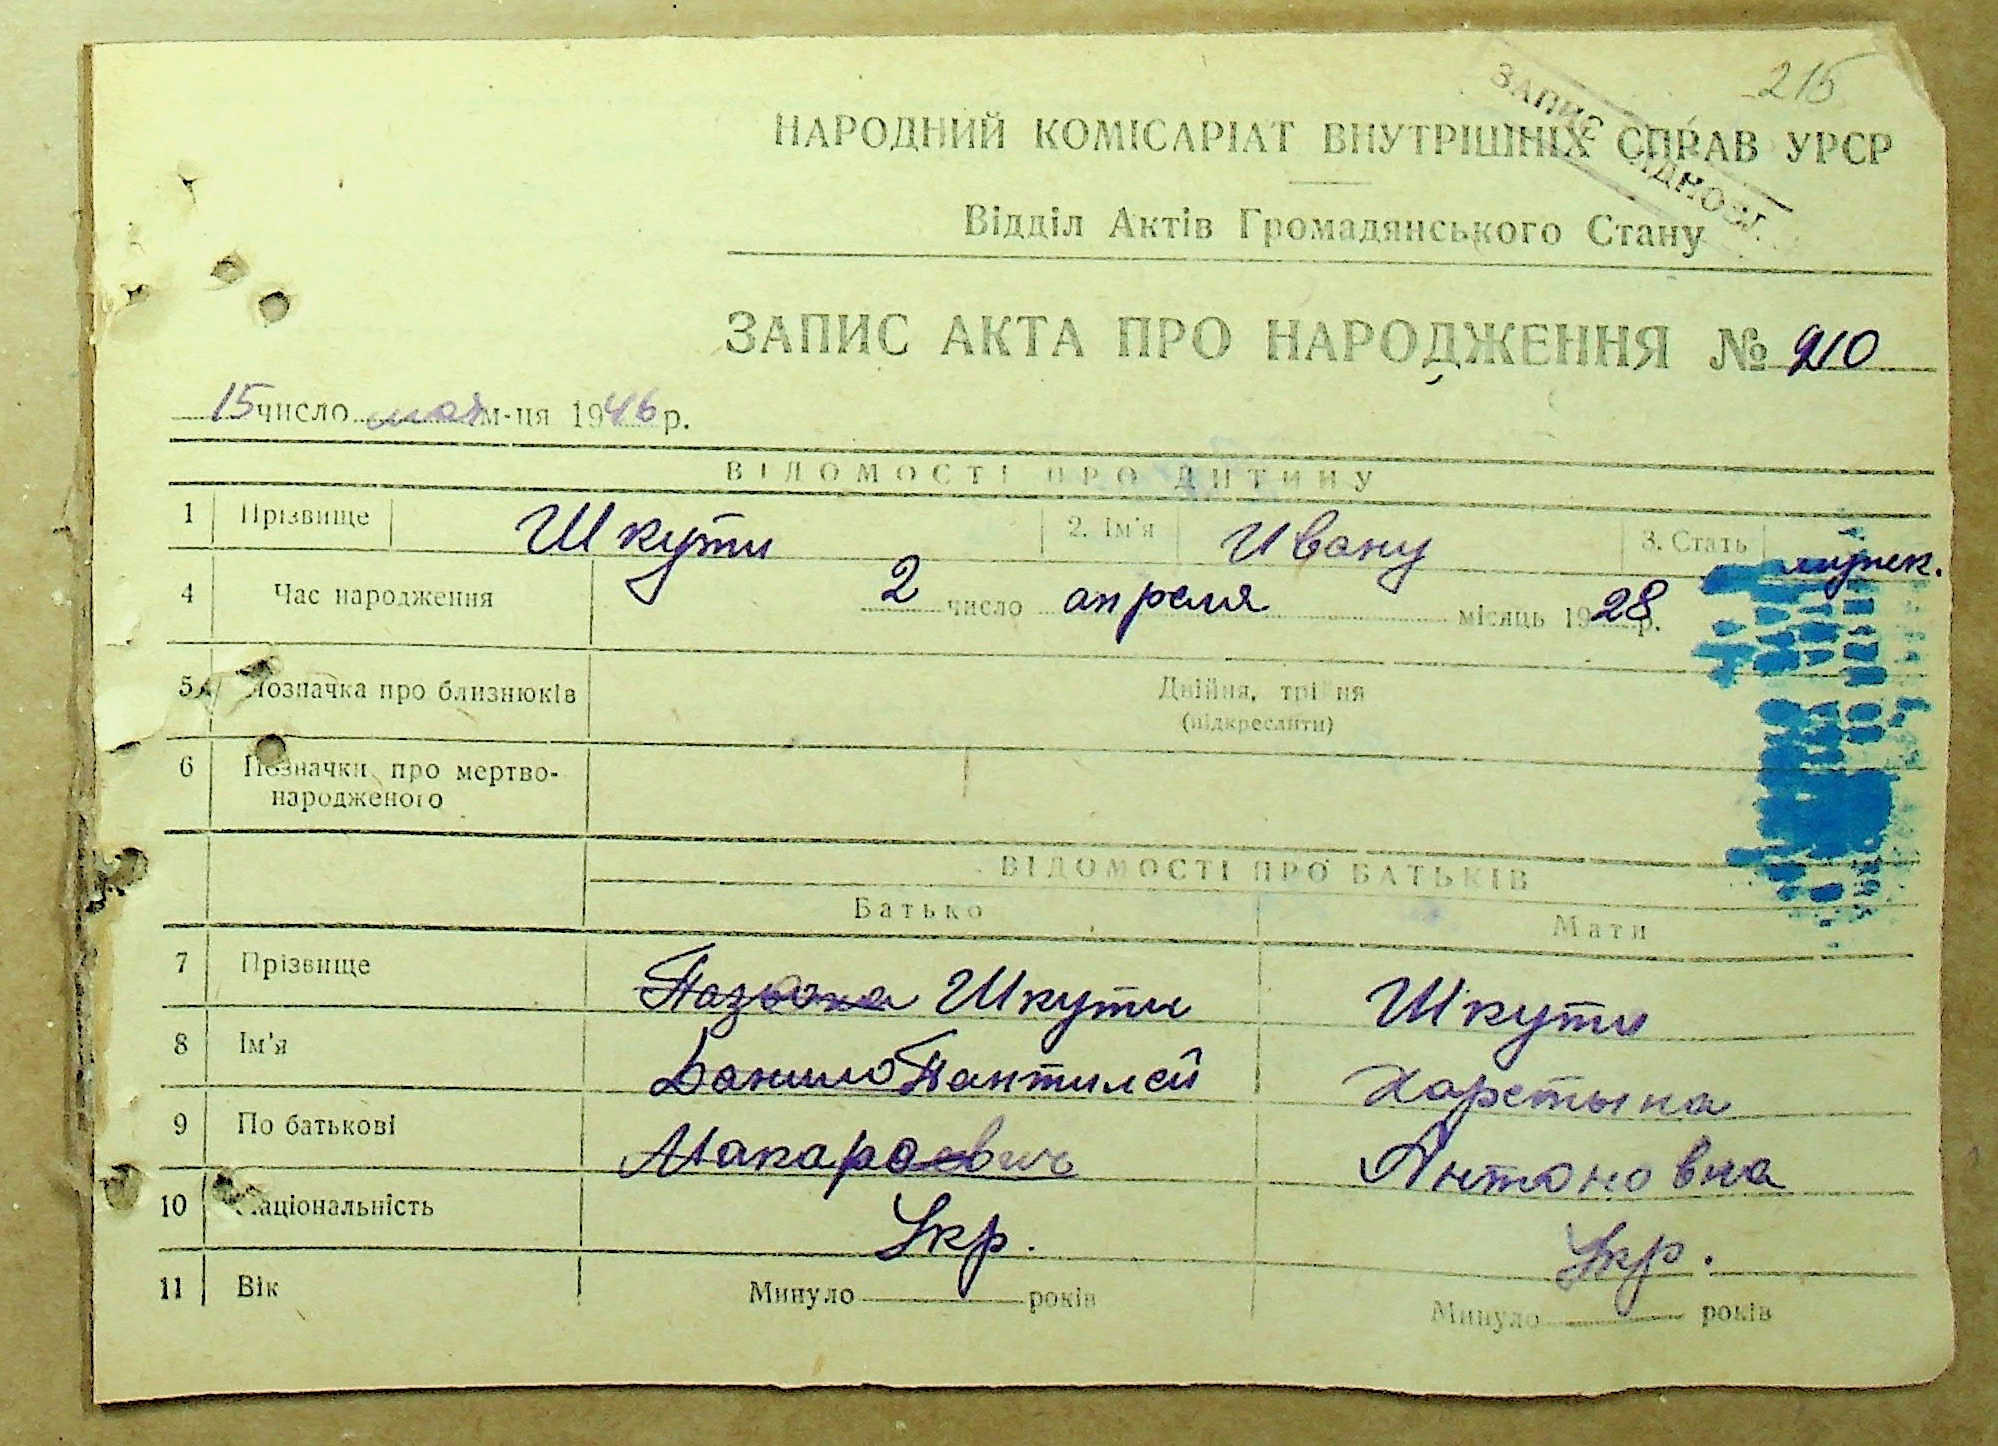 215
ЗАПИС ВІДНОВЛ.
НАРОДНИЙ КОМІСАРІАТ ВНУТРІШНІХ СПРАВ УРСР
Відділ Актів Громадянського Стану
ЗАПИС АКТА ПРО НАРОДЖЕННЯ № 210
15 число мая м-ця 1946 р.
ВІДОМОСТІ ПРО ДИТИНУ
1 Прізвище Шкути 2. Ім'я Ивану 3. Стать мужск.
4 Час народження 2 число апреля місяць 1928 р.
5 Позначка про близнюків Двійня, трійня
(підкреслити)
6 Позначки про мертво-
народженого
ВІДОМОСТІ ПРО БАТЬКІВ
Батько Мати
7 Прізвище Шкути Шкути
8 Ім'я Данило Пантилей Харетына
9 По батькові Макарович Антоновна
10 Національність Укр. Укр.
11 Вік Минуло років Минуло років